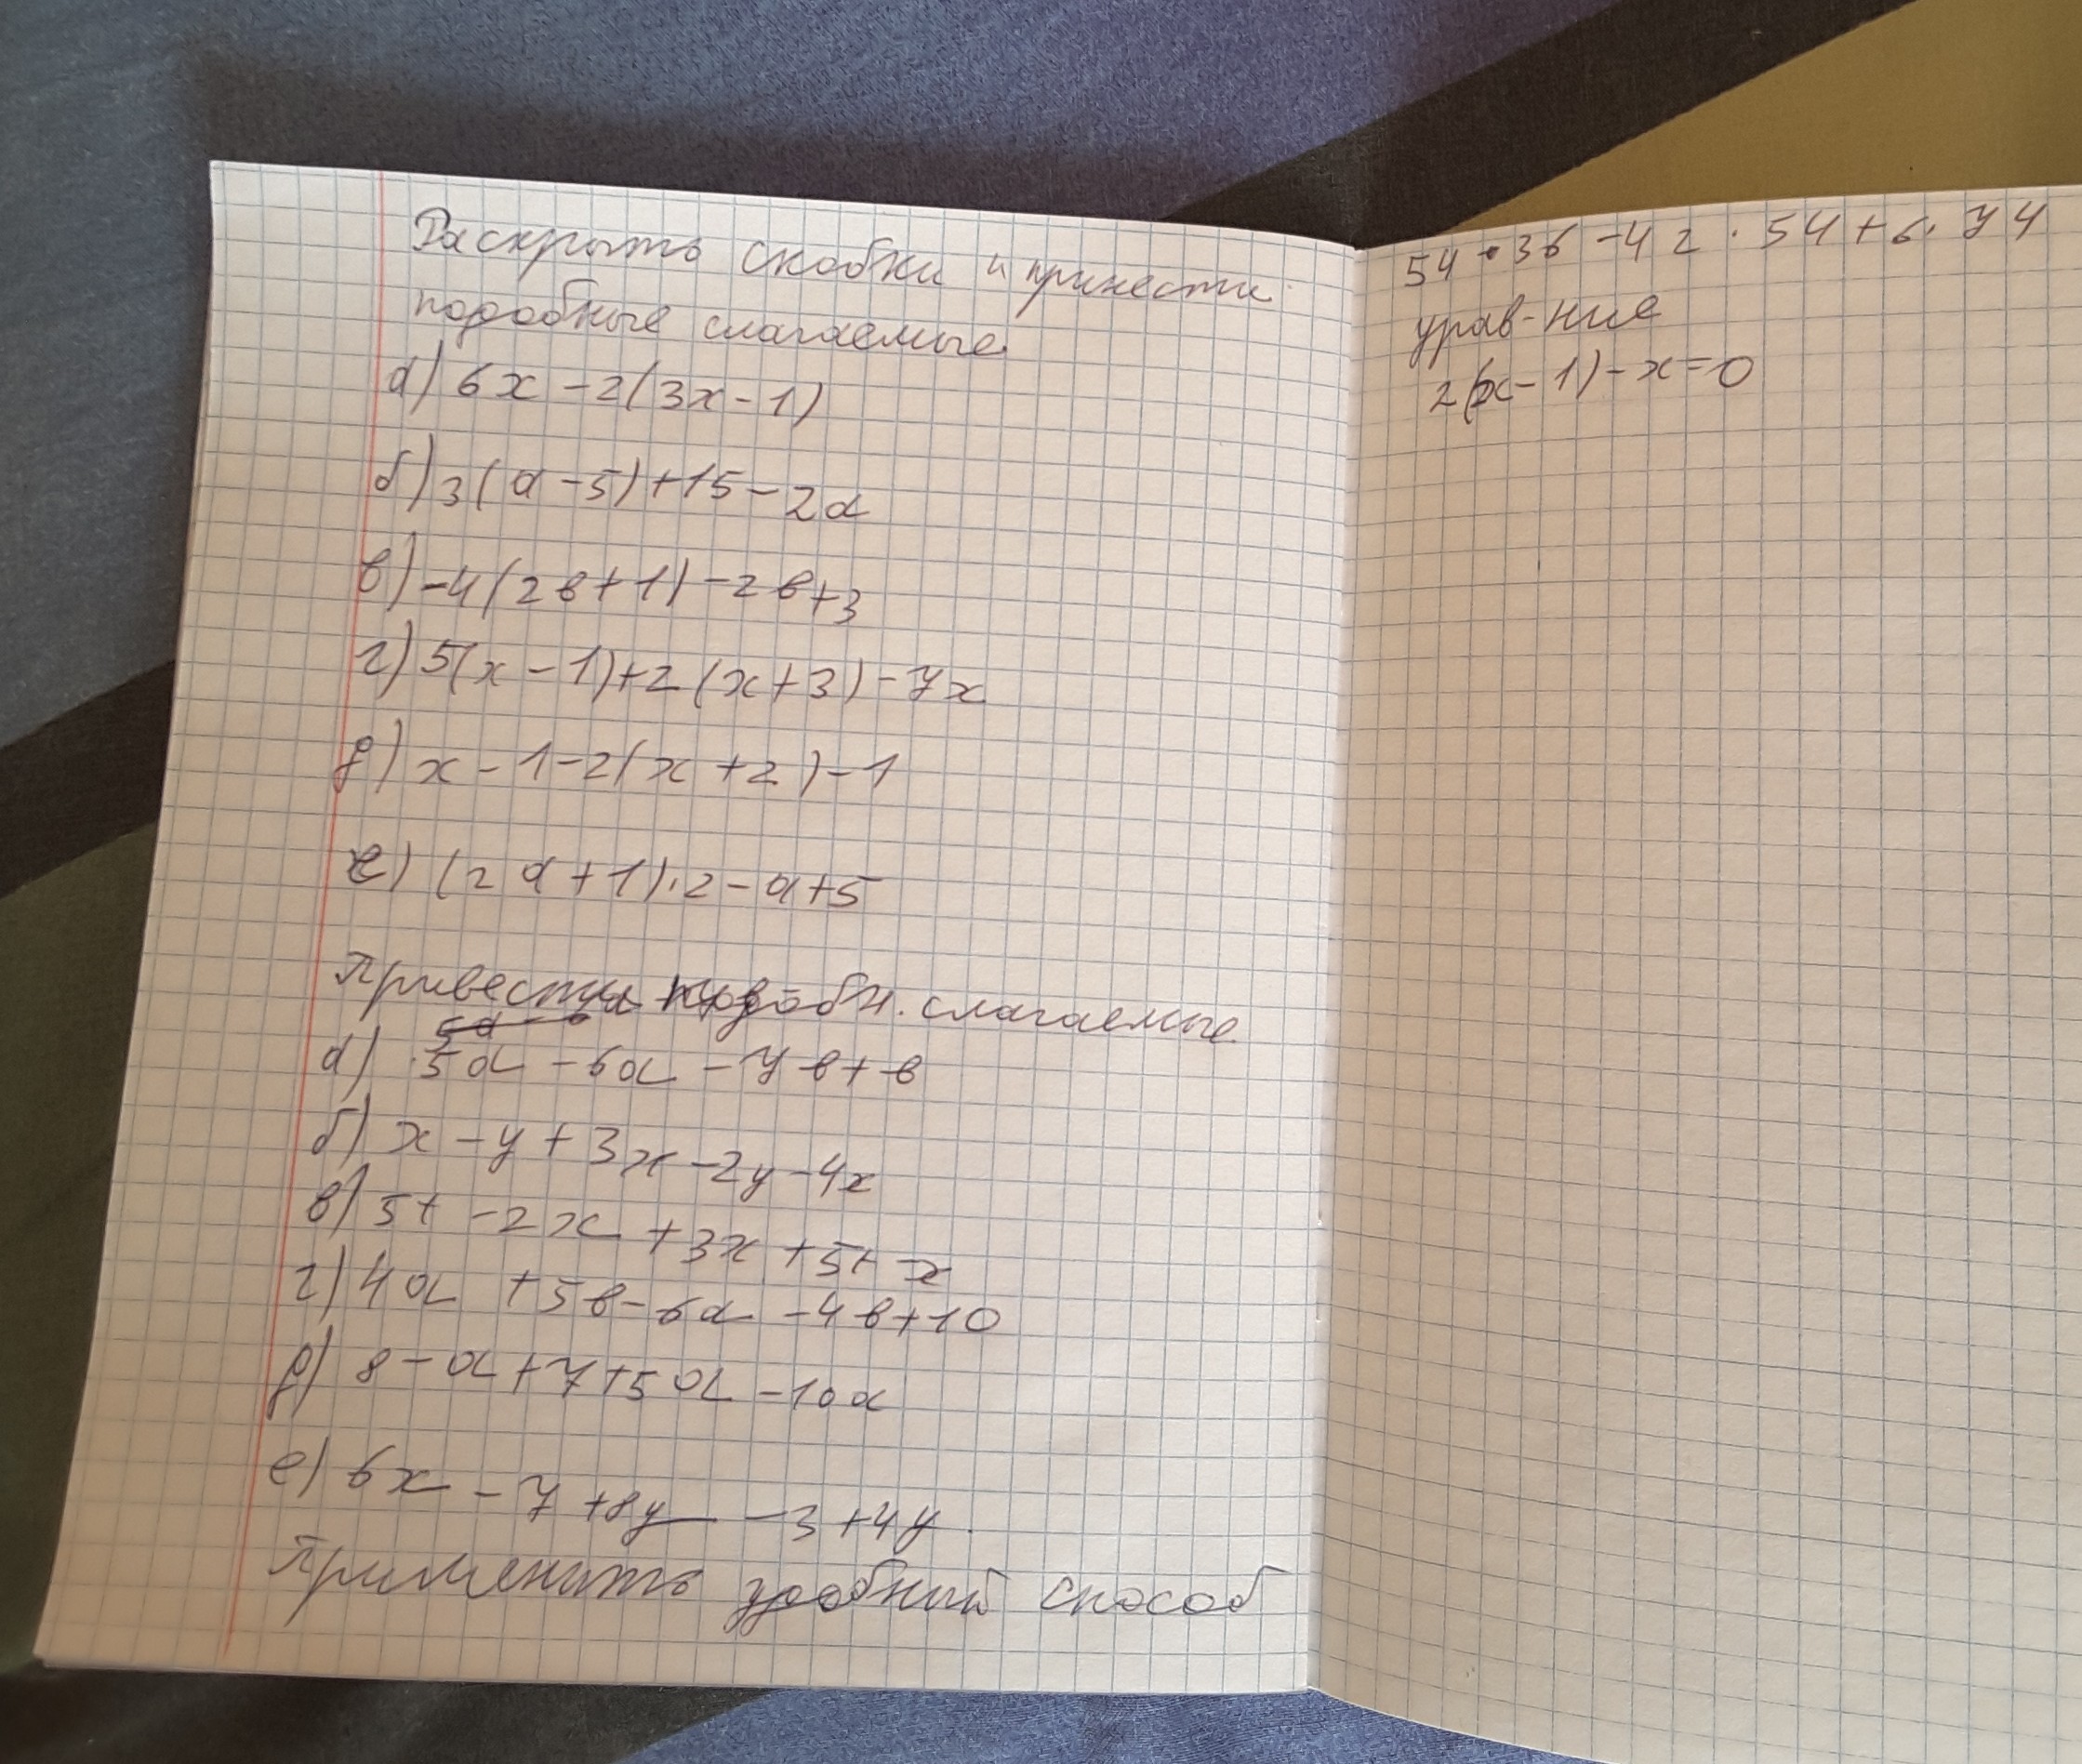 Раскрыть скобки и принести
подобные слагаемые
а) 6x - 2(3x - 1)
б) 3(a - 5) + 15 - 2a
в) -4(2в + 1) - 2в + 3
г) 5(x - 1) + 2(x + 3) - 7x
д) x - 1 - 2(x + 2) - 1
е) (2a + 1)·2 - a + 5
Привести подобн. слагаемые
а) 5a - 6a - 7в + в
б) x - y + 3x - 2y - 4x
в) 5t - 2x + 3x + 5t - x
г) 4a + 5в - 6a - 4в + 10
д) 8 - a + 7 + 5a - 10a
е) 6x - 7 + 8y - 3 + 4y
Применить удобный способ
54 · 36 - 42 · 54 + 6 · 74
урав-ние
2(x - 1) - x = 0